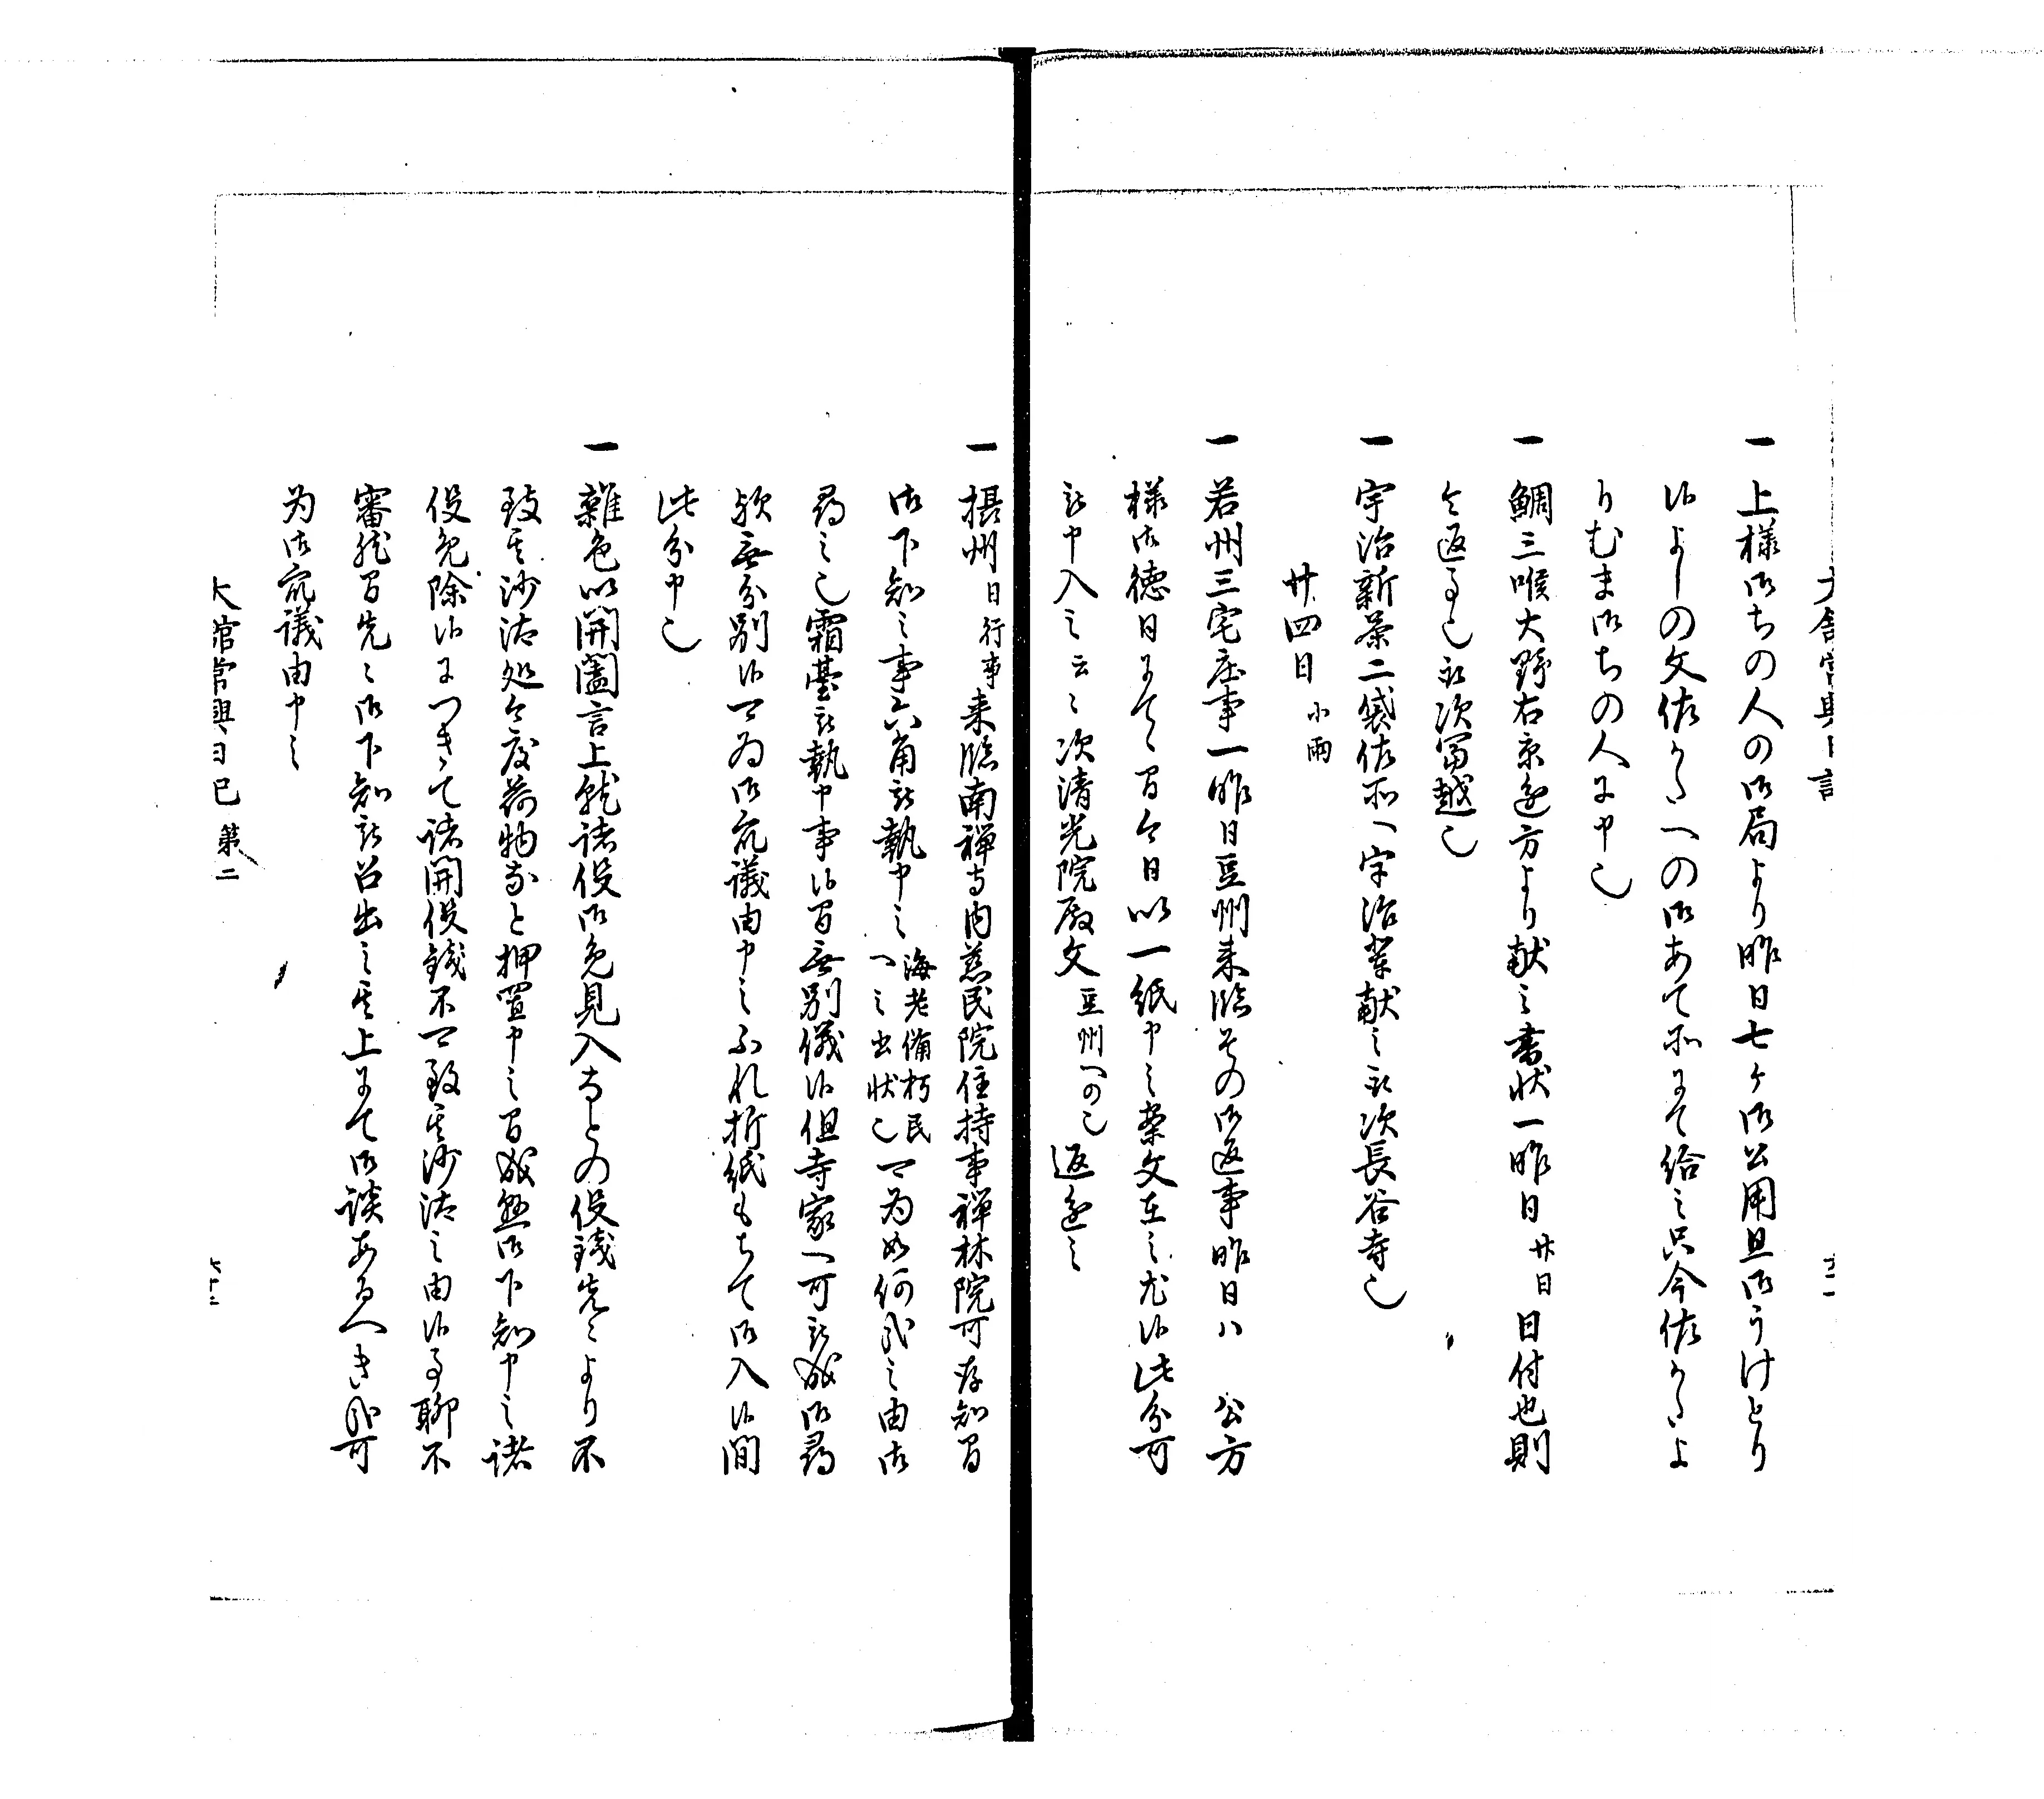 一 上様御ちの人の御局より昨日七ヶ御公用且御うけとり
候よしの文佐かたへの御あて所にて給之只今佐かたよ
りむま御ちの人に申也
一 鯛三喉大野右京進方より献之書状一昨日廿日日付也則
令返事也取次冨越也
一 宇治新茶二袋佐所へ宇治輩献之取次長谷寺也
廿四日 小雨
一 若州三宅庄事一昨日豆州来臨その御返事昨日ハ 公方
様御徳日にて候間今日以一紙申之案文在之尤候此分可
被申入之云々次清光院殿文豆州への也返進之
一 摂州日行事来臨南禅寺内慈民院住持事禅林院可存知間
御下知之事六角被執申之海老備朽民へ之書状也可為如何哉之由御
尋之也霜台被執申事候間無別儀候但寺家へ可被成御尋
歟無分別候可為御衆議由申之ふれ折紙もちて御入候間
此分申也
一 雑色以開闔言上就諸役御免見入なとの役銭先々より不
致其沙汰処今度荷物なと押置申之間成無御下知申之諸
役免除候につきて諸関役銭不可致其沙汰之由候事聊不
審然間先々御下知被召出之其上にて御談あるへき哉可
為御衆議由申之
大館常興日記 第二